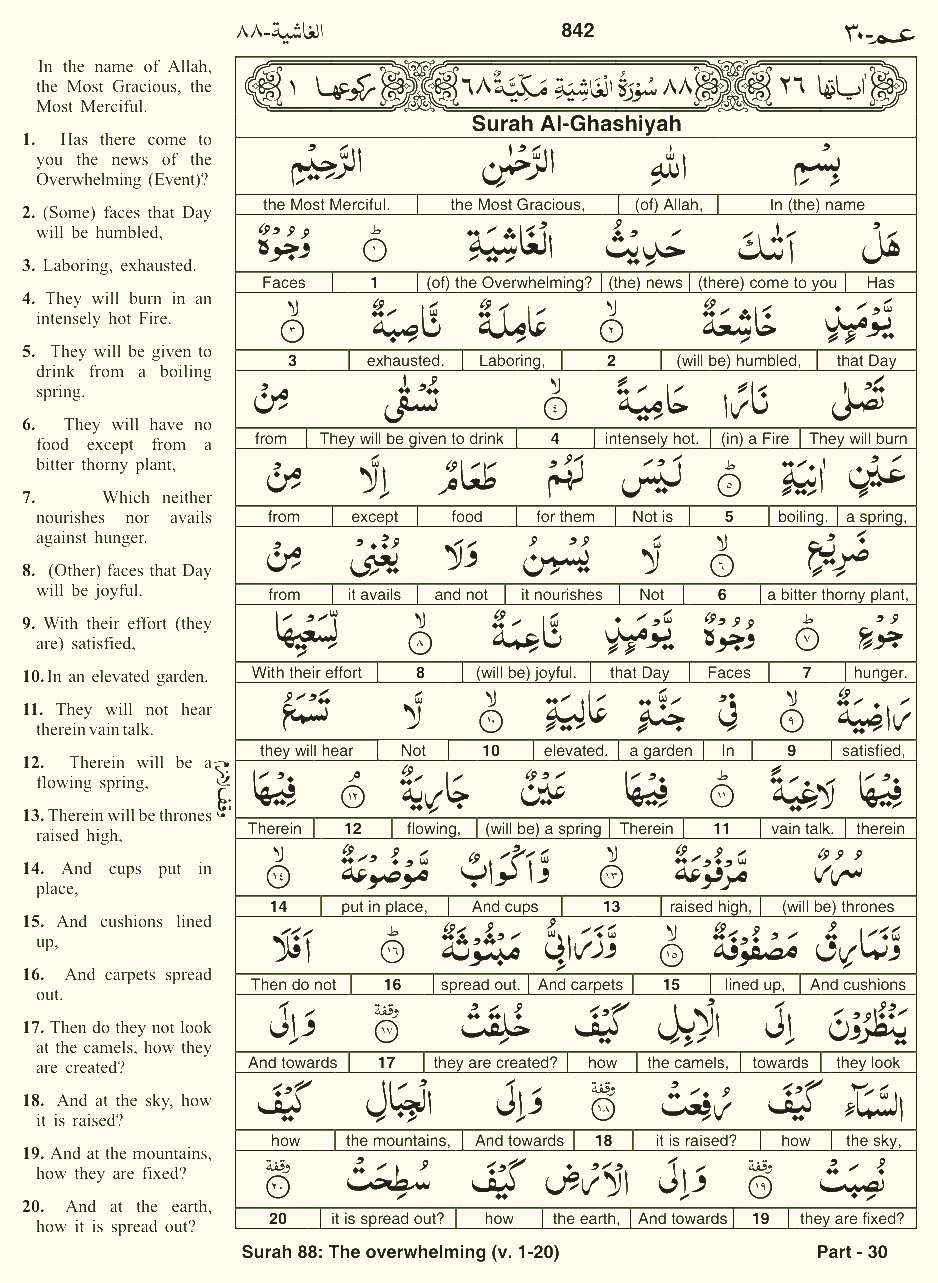 الغاشية-٨٨ 842 عـم-٣٠
In the name of Allah,
the Most Gracious, the
Most Merciful.
1. Has there come to
you the news of the
Overwhelming (Event)?
2. (Some) faces that Day
will be humbled,
3. Laboring, exhausted.
4. They will burn in an
intensely hot Fire.
5. They will be given to
drink from a boiling
spring.
6. They will have no
food except from a
bitter thorny plant,
7. Which neither
nourishes nor avails
against hunger.
8. (Other) faces that Day
will be joyful.
9. With their effort (they
are) satisfied,
10. In an elevated garden.
11. They will not hear
therein vain talk.
12. Therein will be a
flowing spring,
13. Therein will be thrones
raised high,
14. And cups put in
place,
15. And cushions lined
up,
16. And carpets spread
out.
17. Then do they not look
at the camels, how they
are created?
18. And at the sky, how
it is raised?
19. And at the mountains,
how they are fixed?
20. And at the earth,
how it is spread out?
اٰیاتها ٢٦ ٨٨ سُوْرَةُ الْغَاشِيَةِ مَكِّيَّةٌ ٦٨ رکوعها ١
Surah Al-Ghashiyah
بِسْمِ اللّٰهِ الرَّحْمٰنِ الرَّحِيْمِ
the Most Merciful. the Most Gracious, (of) Allah, In (the) name
هَلْ اَتٰىكَ حَدِيْثُ الْغَاشِيَةِ ؕ ١ وُجُوْهٌ
Faces 1 (of) the Overwhelming? (the) news (there) come to you Has
يَّوْمَىِٕذٍ خَاشِعَةٌ ۙ ٢ عَامِلَةٌ نَّاصِبَةٌ ۙ ٣
3 exhausted. Laboring, 2 (will be) humbled, that Day
تَصْلٰى نَارًا حَامِيَةً ۙ ٤ تُسْقٰى مِنْ
from They will be given to drink 4 intensely hot. (in) a Fire They will burn
عَيْنٍ اٰنِيَةٍ ؕ ٥ لَيْسَ لَهُمْ طَعَامٌ اِلَّا مِنْ
from except food for them Not is 5 boiling. a spring,
ضَرِيْعٍ ۙ ٦ لَّا يُسْمِنُ وَلَا يُغْنِيْ مِنْ
from it avails and not it nourishes Not 6 a bitter thorny plant,
جُوْعٍ ؕ ٧ وُجُوْهٌ يَّوْمَىِٕذٍ نَّاعِمَةٌ ۙ ٨ لِّسَعْيِهَا
With their effort 8 (will be) joyful. that Day Faces 7 hunger.
رَاضِيَةٌ ۙ ٩ فِيْ جَنَّةٍ عَالِيَةٍ ۙ ١٠ لَّا تَسْمَعُ
they will hear Not 10 elevated. a garden In 9 satisfied,
فِيْهَا لَاغِيَةً ؕ ١١ فِيْهَا عَيْنٌ جَارِيَةٌ ۘ ١٢ فِيْهَا
وقف لازم
Therein 12 flowing, (will be) a spring Therein 11 vain talk. therein
سُرُرٌ مَّرْفُوْعَةٌ ۙ ١٣ وَّاَكْوَابٌ مَّوْضُوْعَةٌ ۙ ١٤
14 put in place, And cups 13 raised high, (will be) thrones
وَّنَمَارِقُ مَصْفُوْفَةٌ ۙ ١٥ وَّزَرَابِيُّ مَبْثُوْثَةٌ ؕ ١٦ اَفَلَا
Then do not 16 spread out. And carpets 15 lined up, And cushions
يَنْظُرُوْنَ اِلَى الْاِبِلِ كَيْفَ خُلِقَتْ وقفة ١٧ وَاِلَى
And towards 17 they are created? how the camels, towards they look
السَّمَآءِ كَيْفَ رُفِعَتْ وقفة ١٨ وَاِلَى الْجِبَالِ كَيْفَ
how the mountains, And towards 18 it is raised? how the sky,
نُصِبَتْ وقفة ١٩ وَاِلَى الْاَرْضِ كَيْفَ سُطِحَتْ وقفة ٢٠
20 it is spread out? how the earth, And towards 19 they are fixed?
Surah 88: The overwhelming (v. 1-20) Part - 30